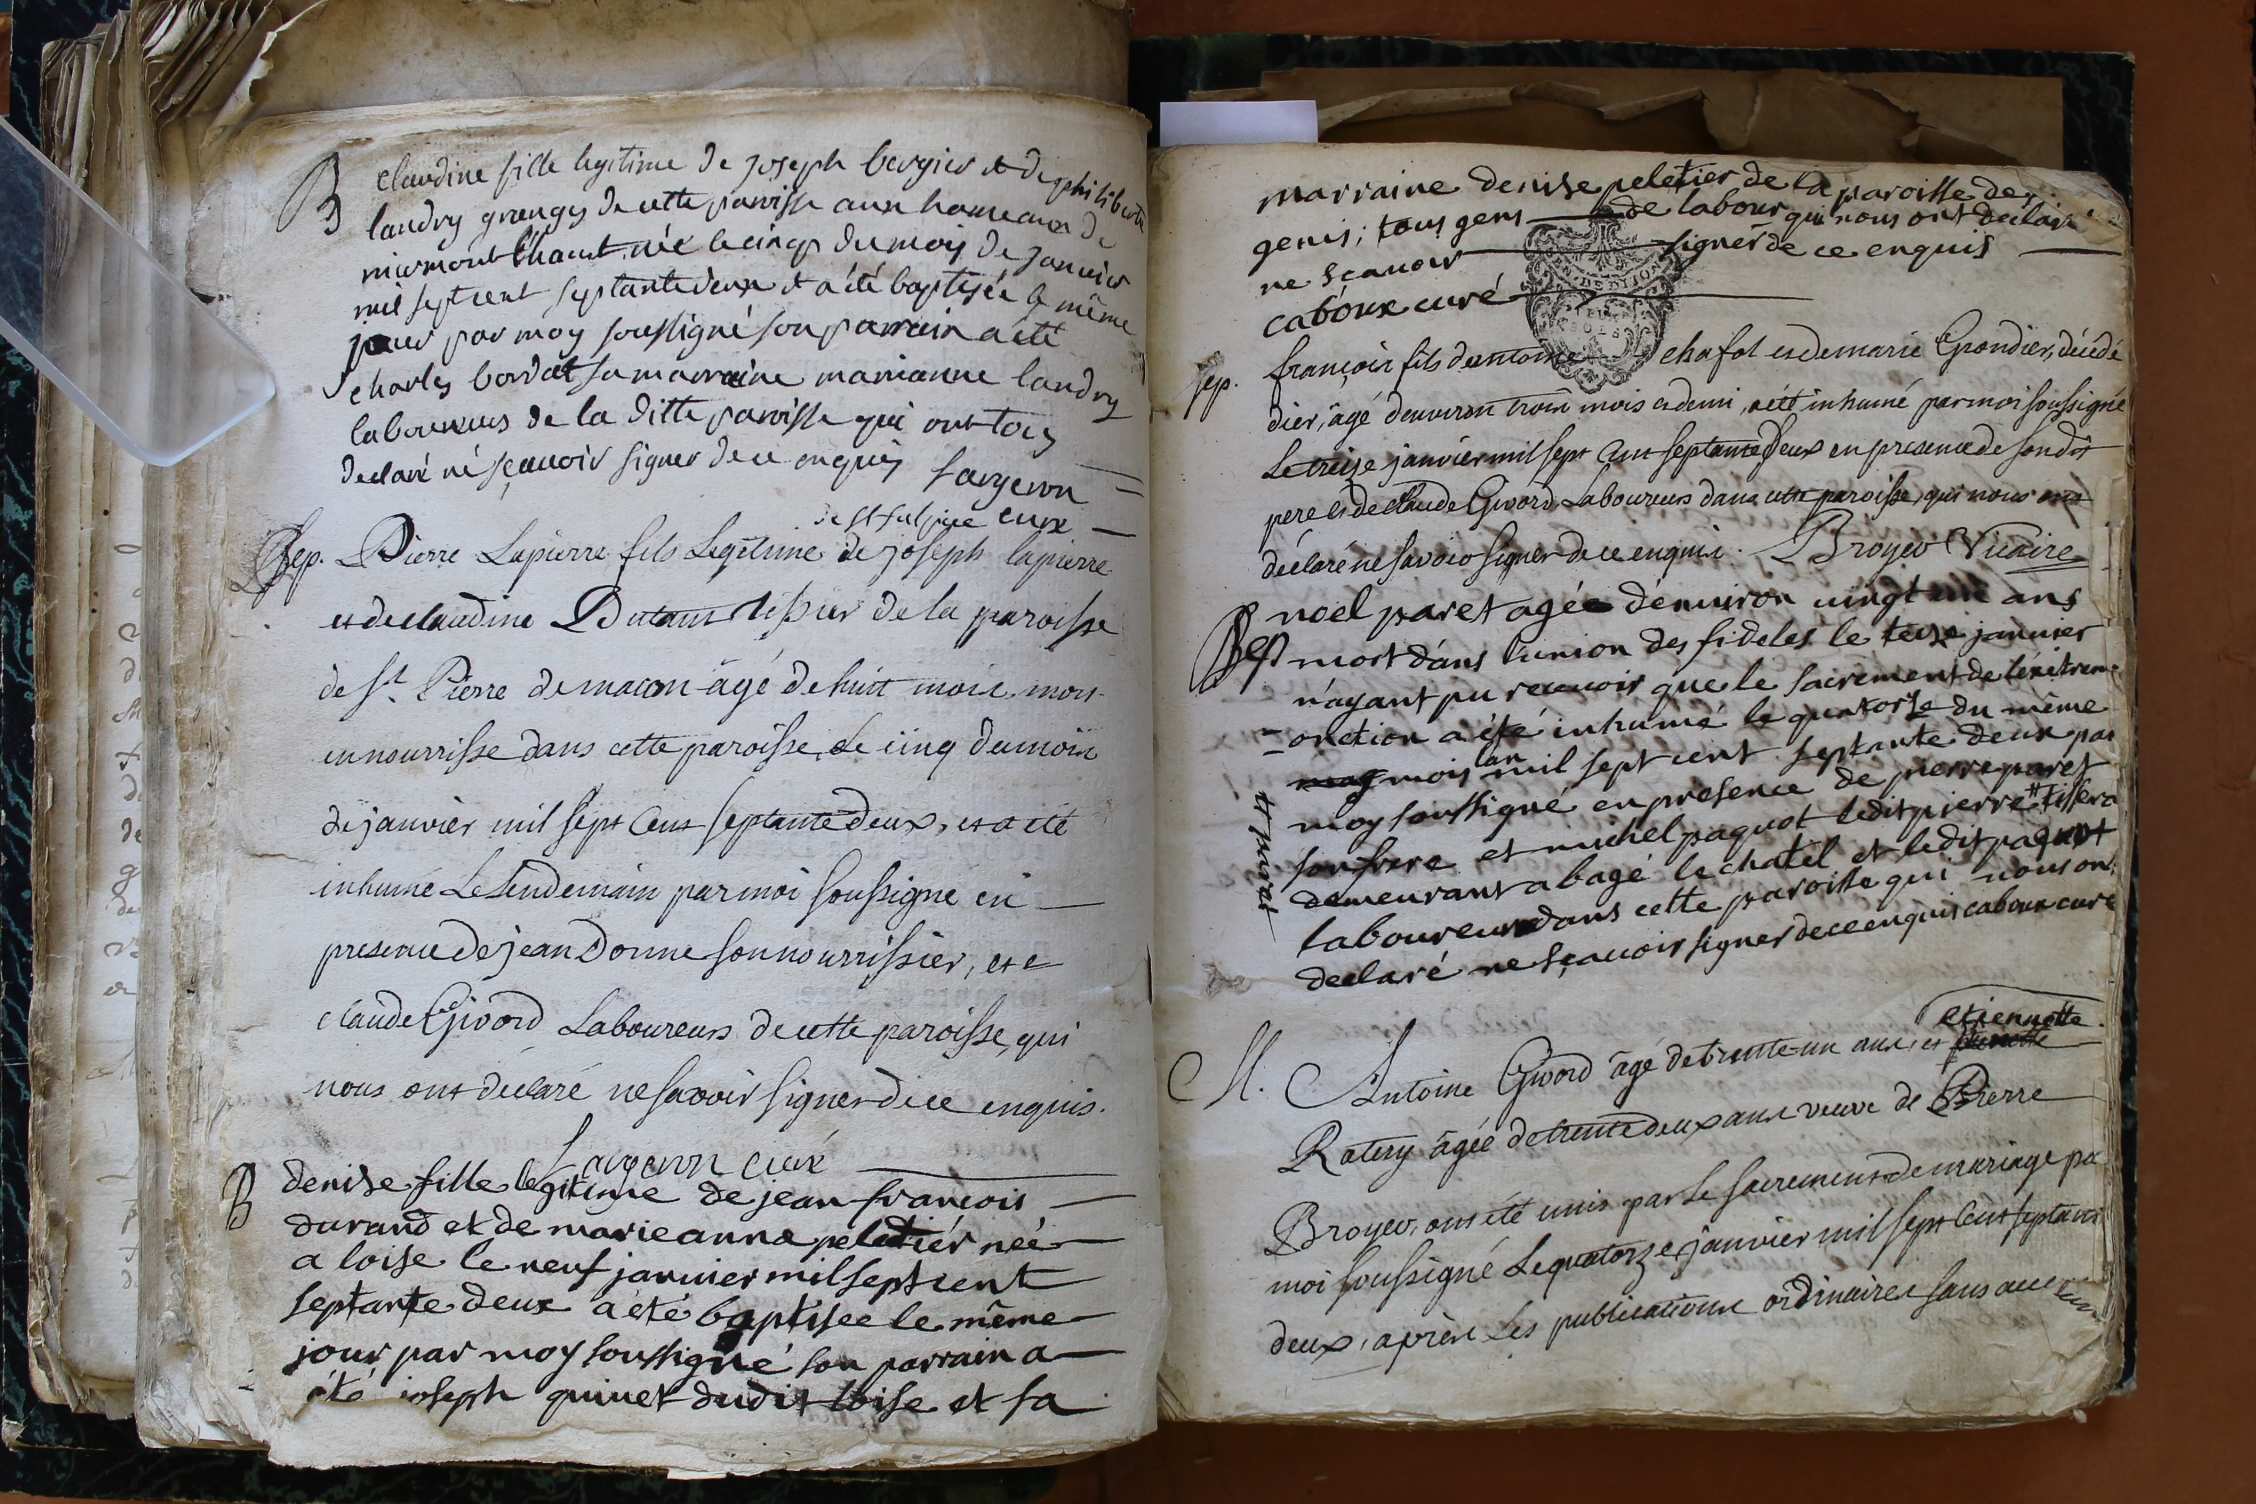 B claudine fille legitime de joseph bergier et de philiberte
landry granges de cette paroisse aux hameaux de
miermont haut née le cinq du mois de janvier
mil sept cent septante deux et a été baptisée le même
jour par moy soussigné son parrain a été
charles bordat sa marraine marianne landry
laboureurs de la ditte paroisse qui ont tous
declaré ne sçavoir signer de ce enquis
fargeron
de st sulpice curé
Sep. Pierre Lapierre fils Legitime de joseph lapierre
et de claudine Dutant de la paroisse
de St. Pierre de macon âgé de huit mois, mort
en nourrisse dans cette paroisse, Le cinq du mois
de janvier mil sept Cent septante deux, et a été
inhumé Le Lendemain par moi soussigné en
presence de jean Donne son nourrissier, et
claude Givord Laboureurs de cette paroisse, qui
nous ont déclaré ne savoir signer de ce enquis.
fargeron curé
B denise fille legitime de jean francois
durand et de marie anne peletiér née
a loise le neuf janvier mil sept cent
septante deux a été baptisee le même
jour par moy soussigné son parrain a
été joseph quinet dudit loise et sa
marraine denise peletier de la paroisse de
genis; tous gens de labour qui nous ont declaré
ne sçavoir signer de ce enquis
caboux curé
Sep. françois fils dantoine chafot et de marie Grondier, décédé
dier, âgé denviron trois mois et demi, a été inhumé par moi soussigné
Le treize janvier mil sept Cent septante deux en presence de son dit
pere et de claude Givord Laboureurs dans cette paroisse, qui nous ont
déclaré ne savoir signer de ce enquis. Broyer Vicaire
Sep noel paret agée denviron vingt ans
mort dans l'union des fideles le janvier
n'ayant pu recevoir que le sacrement de léxtrem=
= onction a été inhumé le quatorze du même
moy mois lan mil sept cent septante deux par
moy soussigné en presence de pierre paret
son frere et michel paquot ledit pierre
demeurant a bagé le chatel et ledit paquot
laboureur dans cette paroisse qui nous ont
declaré ne sçavoir signer de ce enquis caboux curé
etiennette
M. Antoine Givord âgé de trente-un ans, et
Ratery âgée de trente deux ans veuve de Pierre
Broyer, ont été unis par Le sacrement de mariage par
moi soussigné Le quatorze janvier mil sept Cent septante
deux, après Les publications ordinaires sans aucun